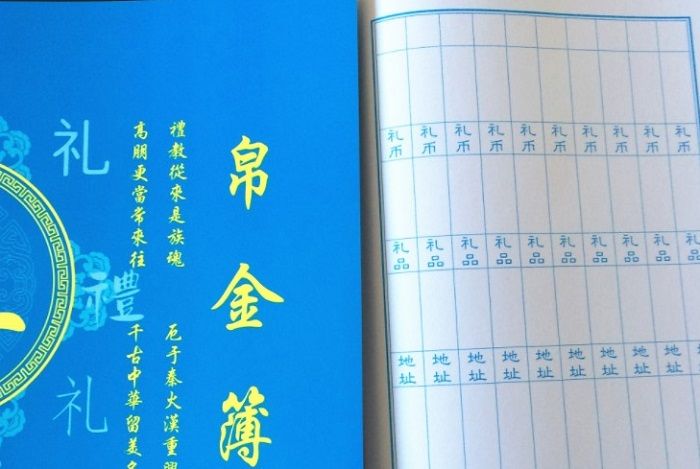 帛金簿
禮教從來是族魂
厄于秦火漢重
高朋更當常來往
千古中華留美
礼
禮
礼
礼币 礼币 礼币 礼币 礼币 礼币 礼币 礼币 礼币
礼品 礼品 礼品 礼品 礼品 礼品 礼品 礼品 礼品 礼品
地址 地址 地址 地址 地址 地址 地址 地址 地址